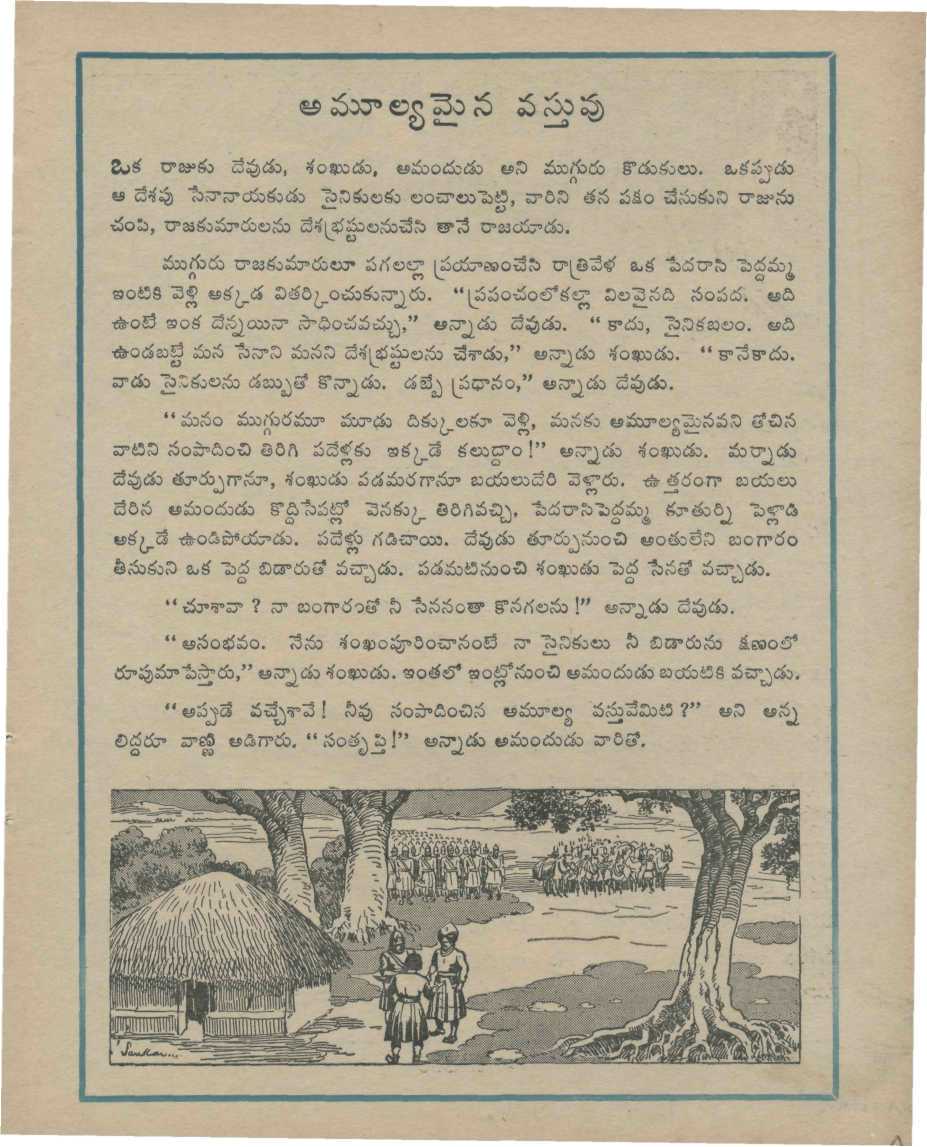 అమూల్యమైన వస్తువు
ఒక రాజుకు దేవుడు, శంఖుడు, అమందుడు అని ముగ్గురు కొడుకులు. ఒకప్పుడు
ఆ దేశపు సేనానాయకుడు సైనికులకు లంచాలుపెట్టి, వారిని తన పక్షం చేసుకుని రాజును
చంపి, రాజకుమారులను దేశభ్రష్టులనుచేసి తానే రాజయాడు.
ముగ్గురు రాజకుమారులూ పగలల్లా ప్రయాణంచేసి రాత్రివేళ ఒక పేదరాసి పెద్దమ్మ
ఇంటికి వెళ్లి అక్కడ వితర్కించుకున్నారు. “ప్రపంచంలోకల్లా విలవైనది సంపద. అది
ఉంటే ఇంక దేన్నయినా సాధించవచ్చు,” అన్నాడు దేవుడు. “కాదు, సైనికబలం. అది
ఉండబట్టే మన సేనాని మనని దేశభ్రష్టులను చేశాడు,” అన్నాడు శంఖుడు. “కానేకాదు.
వాడు సైనికులను డబ్బుతో కొన్నాడు. డబ్బే ప్రధానం,” అన్నాడు దేవుడు.
“మనం ముగ్గురమూ మూడు దిక్కులకూ వెళ్లి, మనకు అమూల్యమైనవని తోచిన
వాటిని సంపాదించి తిరిగి పదేళ్లకు ఇక్కడే కలుద్దాం!” అన్నాడు శంఖుడు. మర్నాడు
దేవుడు తూర్పుగానూ, శంఖుడు పడమరగానూ బయలుదేరి వెళ్లారు. ఉత్తరంగా బయలు
దేరిన అమందుడు కొద్దిసేపట్లో వెనక్కు తిరిగివచ్చి, పేదరాసిపెద్దమ్మ కూతుర్ని పెళ్లాడి
అక్కడే ఉండిపోయాడు. పదేళ్లు గడిచాయి. దేవుడు తూర్పునుంచి అంతులేని బంగారం
తీసుకుని ఒక పెద్ద బిడారుతో వచ్చాడు. పడమటినుంచి శంఖుడు పెద్ద సేనతో వచ్చాడు.
“చూశావా? నా బంగారంతో నీ సేననంతా కొనగలను!” అన్నాడు దేవుడు.
“అసంభవం. నేను శంఖంపూరించానంటే నా సైనికులు నీ బిడారును క్షణంలో
రూపుమాపేస్తారు,” అన్నాడు శంఖుడు. ఇంతలో ఇంట్లోనుంచి అమందుడు బయటికి వచ్చాడు.
“అప్పుడే వచ్చేశావే! నీవు సంపాదించిన అమూల్య వస్తువేమిటి?” అని అన్న
లిద్దరూ వాణ్ణి అడిగారు. “సంతృప్తి!” అన్నాడు అమందుడు వారితో.
Sankar...